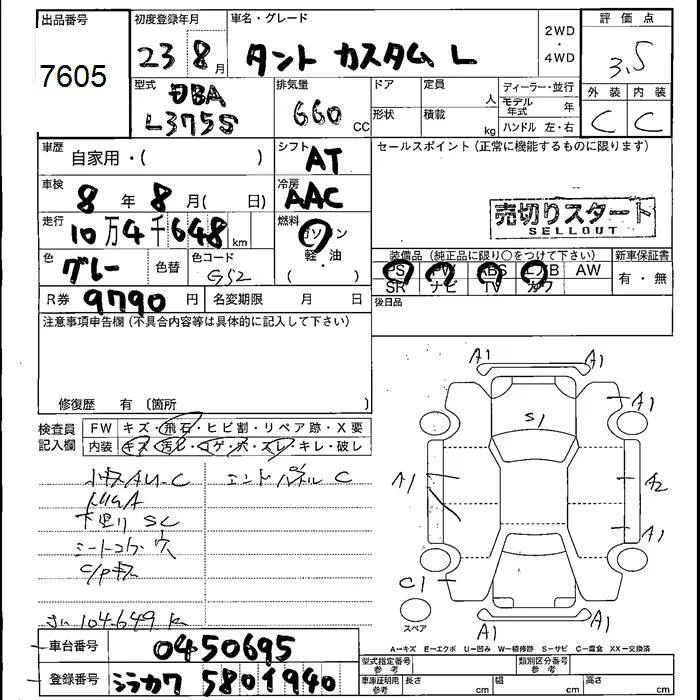 出品番号
7605
初度登録年月
23 8月
車名・グレード
タント カスタム L
2WD
・
4WD
評価点
3.5
外装 内装
C C
型式
DBA
L375S
排気量
660 CC
ドア
定員
人
形状
積載
kg
ディーラー・並行
モデル年式 年
ハンドル 左・右
車歴
自家用・( )
シフト
AT
セールスポイント(正常に機能するものに限ります)
車検
8年 8月( 日)
冷房
AAC
売切りスタート
SELLOUT
走行
10万4千648km
燃料
ガソリン
・
軽・油
( )
色
グレー
色替
色コード
G52
装備品(純正品に限り○をつけて下さい)
PS PW ABS エアB AW
SR ナビ TV カワ
新車保証書
有・無
R券 9790円
名変期限 月 日
後日品
注意事項申告欄(不具合内容等は具体的に記入して下さい)
修復歴 有 〔箇所 〕
検査員
記入欄
FW キズ・飛石・ヒビ割・リペア跡・X要
内装 キズ・汚レ・コゲ・穴・スレ・キレ・破レ
エンドパネル C
下廻り SC
シートコゲ 穴
C/Pキズ
104.649 K
A1 A1
A1
S1
A1
A2
A1
C1
A1 A1
スペア
A-キズ E-エクボ U-凹み W-補修跡 S-サビ C-腐食 XX-交換済
車台番号 0450695
登録番号 シラカワ 580 イ 940
型式指定番号
参考
類別区分番号
参考
車庫証明用
参考
長さ cm
幅 cm
高さ cm